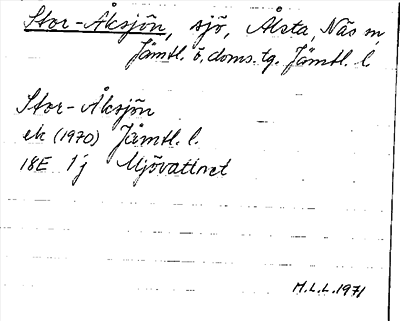 Stor-Åksjön, sjö, Ålsta, Näs m,
Jämtl. ö. doms. tg. Jämtl. l.
Stor-Åksjön
ek (1970) Jämtl. l.
18E 1j Mjövattnet
M.L.L. 1971